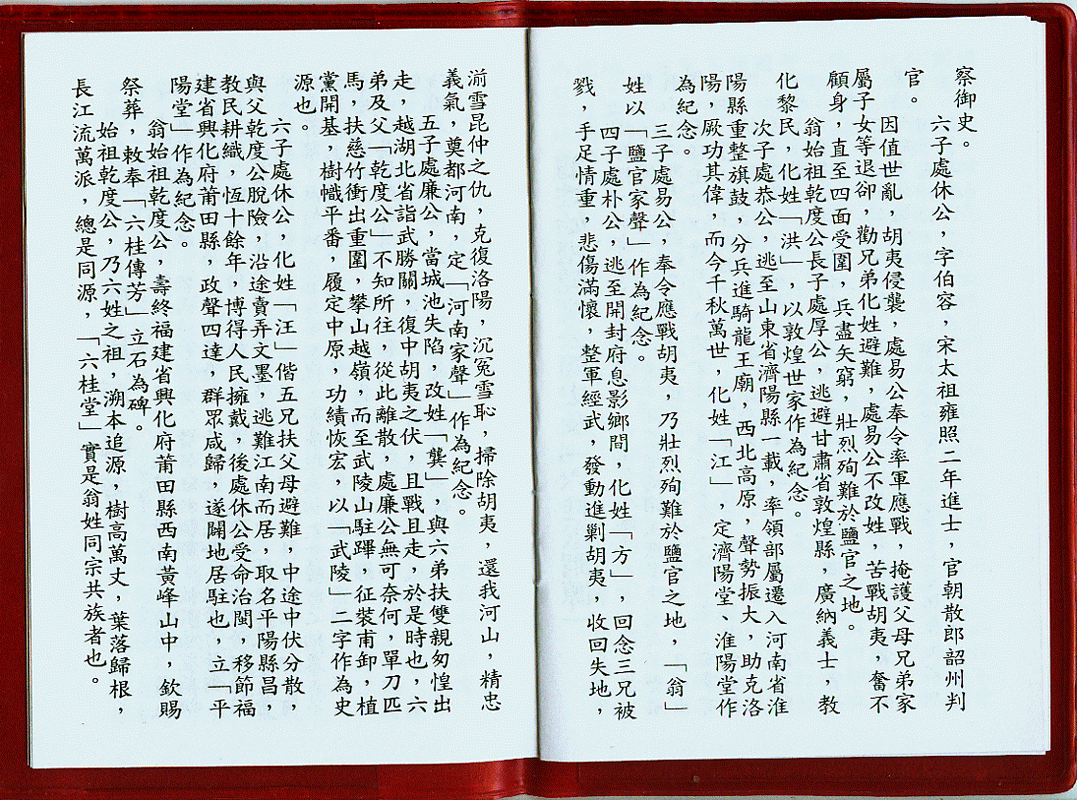 察御史。
六子處休公，字伯容，宋太祖雍照二年進士，官朝散郎韶州判
官。
因值世亂，胡夷侵襲，處易公奉令率軍應戰，掩護父母兄弟家
屬子女等退卻，勸兄弟化姓避難，處易公不改姓，苦戰胡夷，奮不
顧身，直至四面受圍，兵盡矢窮，壯烈殉難於鹽官之地。
翁始祖乾度公長子處厚公，逃避甘肅省敦煌縣，廣納義士，教
化黎民，化姓「洪」，以敦煌世家作為紀念。
次子處恭公，逃至山東省濟陽縣一載，率領部屬遷入河南省淮
陽縣重整旗鼓，分兵進騎龍王廟，西北高原，聲勢振大，助克洛
陽，厥功其偉，而今千秋萬世，化姓「江」，定濟陽堂、淮陽堂作
為紀念。
三子處易公，奉令應戰胡夷，乃壯烈殉難於鹽官之地，「翁」
姓以「鹽官家聲」作為紀念。
四子處朴公，逃至開封府息影鄉間，化姓「方」，回念三兄被
戮，手足情重，悲傷滿懷，整軍經武，發動進剿胡夷，收回失地，
湔雪昆仲之仇，克復洛陽，沉冤雪恥，掃除胡夷，還我河山，精忠
義氣，奠都河南，定「河南家聲」作為紀念。
五子處廉公，當城池失陷，改姓「龔」，與六弟扶雙親匆惶出
走，越湖北省詣武勝關，復中胡夷之伏，且戰且走，於是時也，六
弟及父「乾度公」不知所往，從此離散，處廉公無可奈何，單刀匹
馬，扶慈竹衝出重圍，攀山越嶺，而至武陵山駐蹕，征裝甫卸，植
黨開基，樹幟平番，履定中原，功績恢宏，以「武陵」二字作為史
源也。
六子處休公，化姓「汪」偕五兄扶父母避難，中途中伏分散，
與父乾度公脫險，沿途賣弄文墨，逃難江南而居，取名平陽縣昌，
教民耕織，恆十餘年，博得人民擁戴，後處休公受命治閩，移節福
建省興化府莆田縣，政聲四達，群眾咸歸，遂闢地居駐也，立「平
陽堂」作為紀念。
翁始祖乾度公，壽終福建省興化府莆田縣西南黃峰山中，欽賜
祭葬，敕奉「六桂傳芳」立石為碑。
始祖乾度公，乃六姓之祖，溯本追源，樹高萬丈，葉落歸根，
長江流萬派，總是同源，「六桂堂」實是翁姓同宗共族者也。